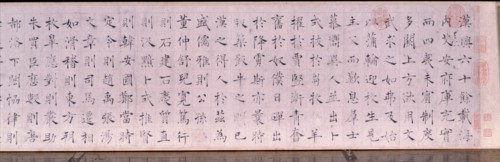 漢興六十餘載海
內乂安府庫充實
而四夷未賓制度
多闕上方欲用文
武求之如弗及始
以蒲輪迎枚生見
主父而歎息群士
慕嚮異人並出卜
式拔於芻牧弘羊
擢於賈豎衛青
奮於奴僕日磾出
於降虜斯亦曩時
版築飯牛之朋已
漢之得人於茲為
盛儒雅則公孫弘
董仲舒兒寬篤行
則石建石慶質直
則汲黯卜式推賢
則韓安國鄭當時
定令則趙禹張湯
文章則司馬遷相
如滑稽則東方朔
枚皋應對則嚴助
朱買臣曆數則唐
都洛下閎協律則